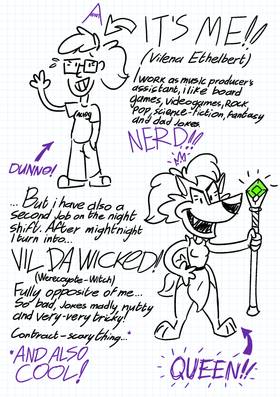 IT'S ME!!
(Vilena Ethelbert)
I work as music producer's
assistant, i like board
games, videogames, rock,
pop, science-fiction, fantasy
and dad jokes.
NERD!!
DUNNO!
... But i have also a
second job on the night
shift. After mightnight
I turn into...
VIL DA WICKED!
(Werecoyote-Witch)
Fully opposite of me...
So bad, jokes madly, nutty
and very-very tricky!
Contract-scarything...
*AND ALSO,
COOL!
QUEEN!!